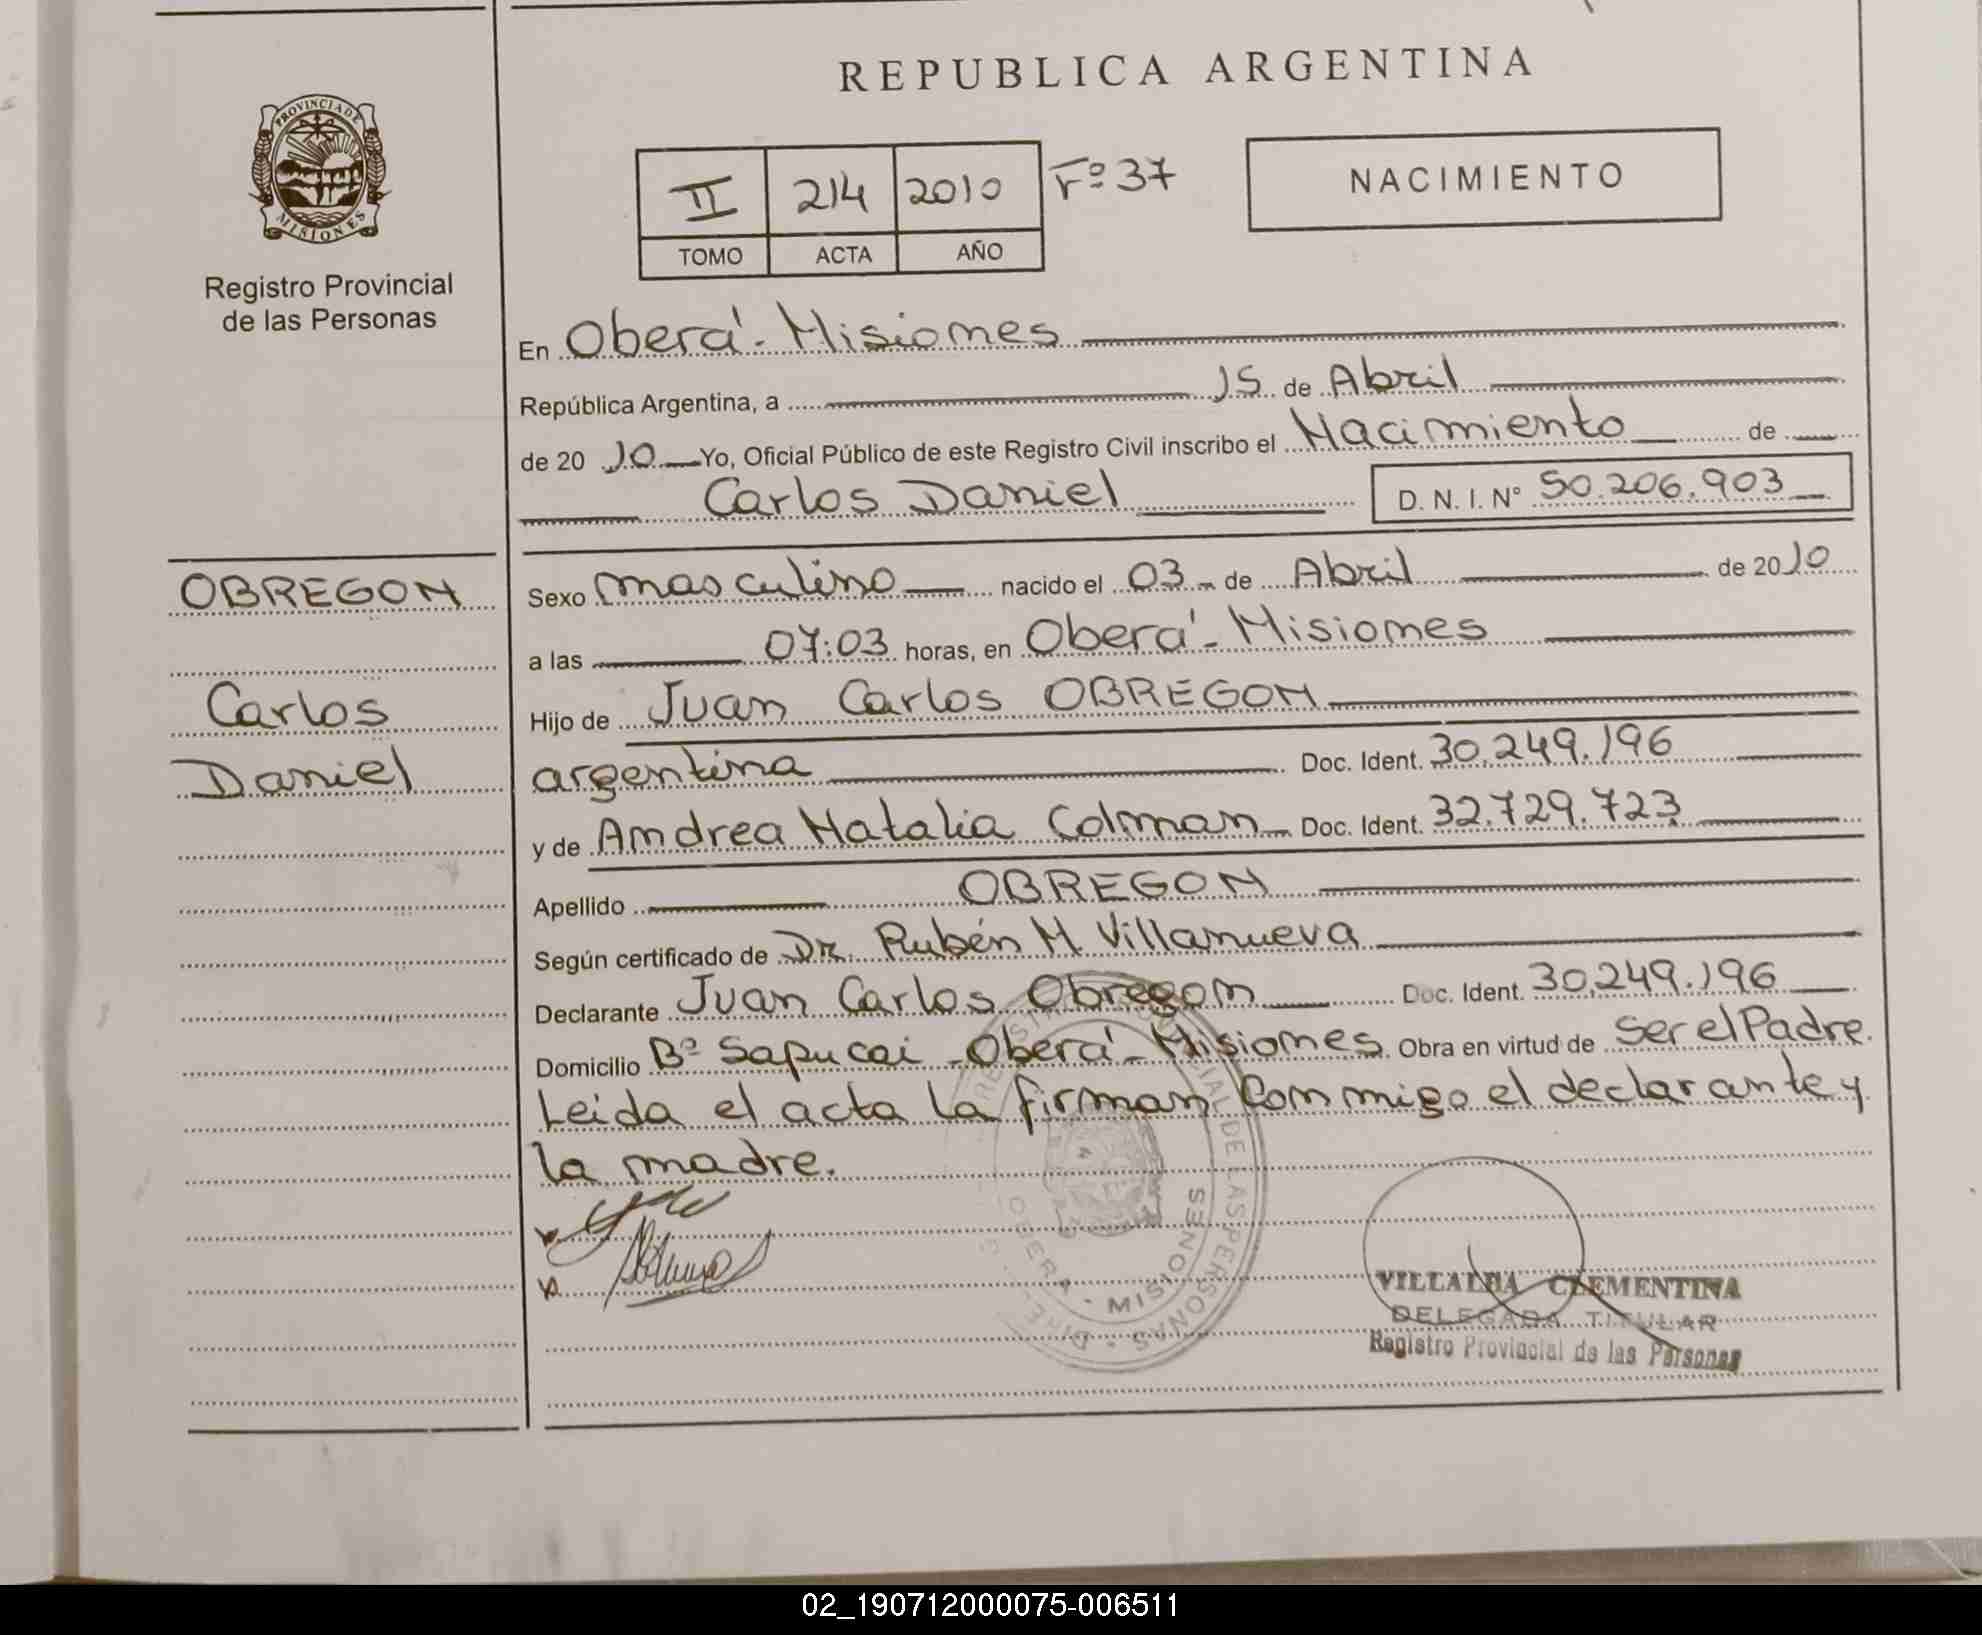 REPUBLICA ARGENTINA
PROVINCIA DE MISIONES
Registro Provincial
de las Personas
II 214 2010 Fº 37
TOMO ACTA AÑO
NACIMIENTO
En Oberá - Misiones
República Argentina, a 15 de Abril
de 20 10 Yo, Oficial Público de este Registro Civil inscribo el Nacimiento de
Carlos Daniel D. N. I. Nº 50.206.903
OBREGON
Carlos
Daniel
Sexo masculino nacido el 03 de Abril de 2010
a las 07:03 horas, en Oberá - Misiones
Hijo de Juan Carlos OBREGON
argentina Doc. Ident. 30.249.196
y de Andrea Natalia Colman Doc. Ident. 32.729.723
Apellido OBREGON
Según certificado de Dr. Rubén M. Villanueva
Declarante Juan Carlos Obregon Doc. Ident. 30.249.196
Domicilio Bº Sapucai - Oberá - Misiones Obra en virtud de Ser el Padre.
Leida el acta la firman Conmigo el declarante y
la madre.
OBERA - MISIONES
VILLALBA CLEMENTINA
DELEGADA TITULAR
Registro Provincial de las Personas
02_190712000075-006511